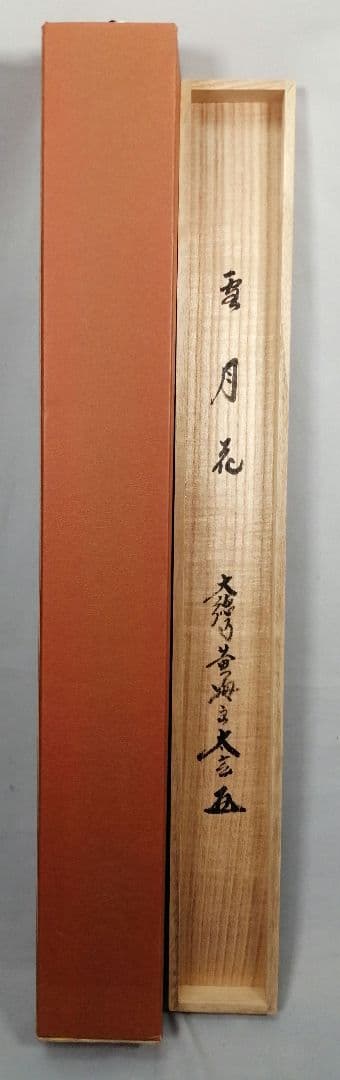 雪月花
大徳寺黄梅主太玄